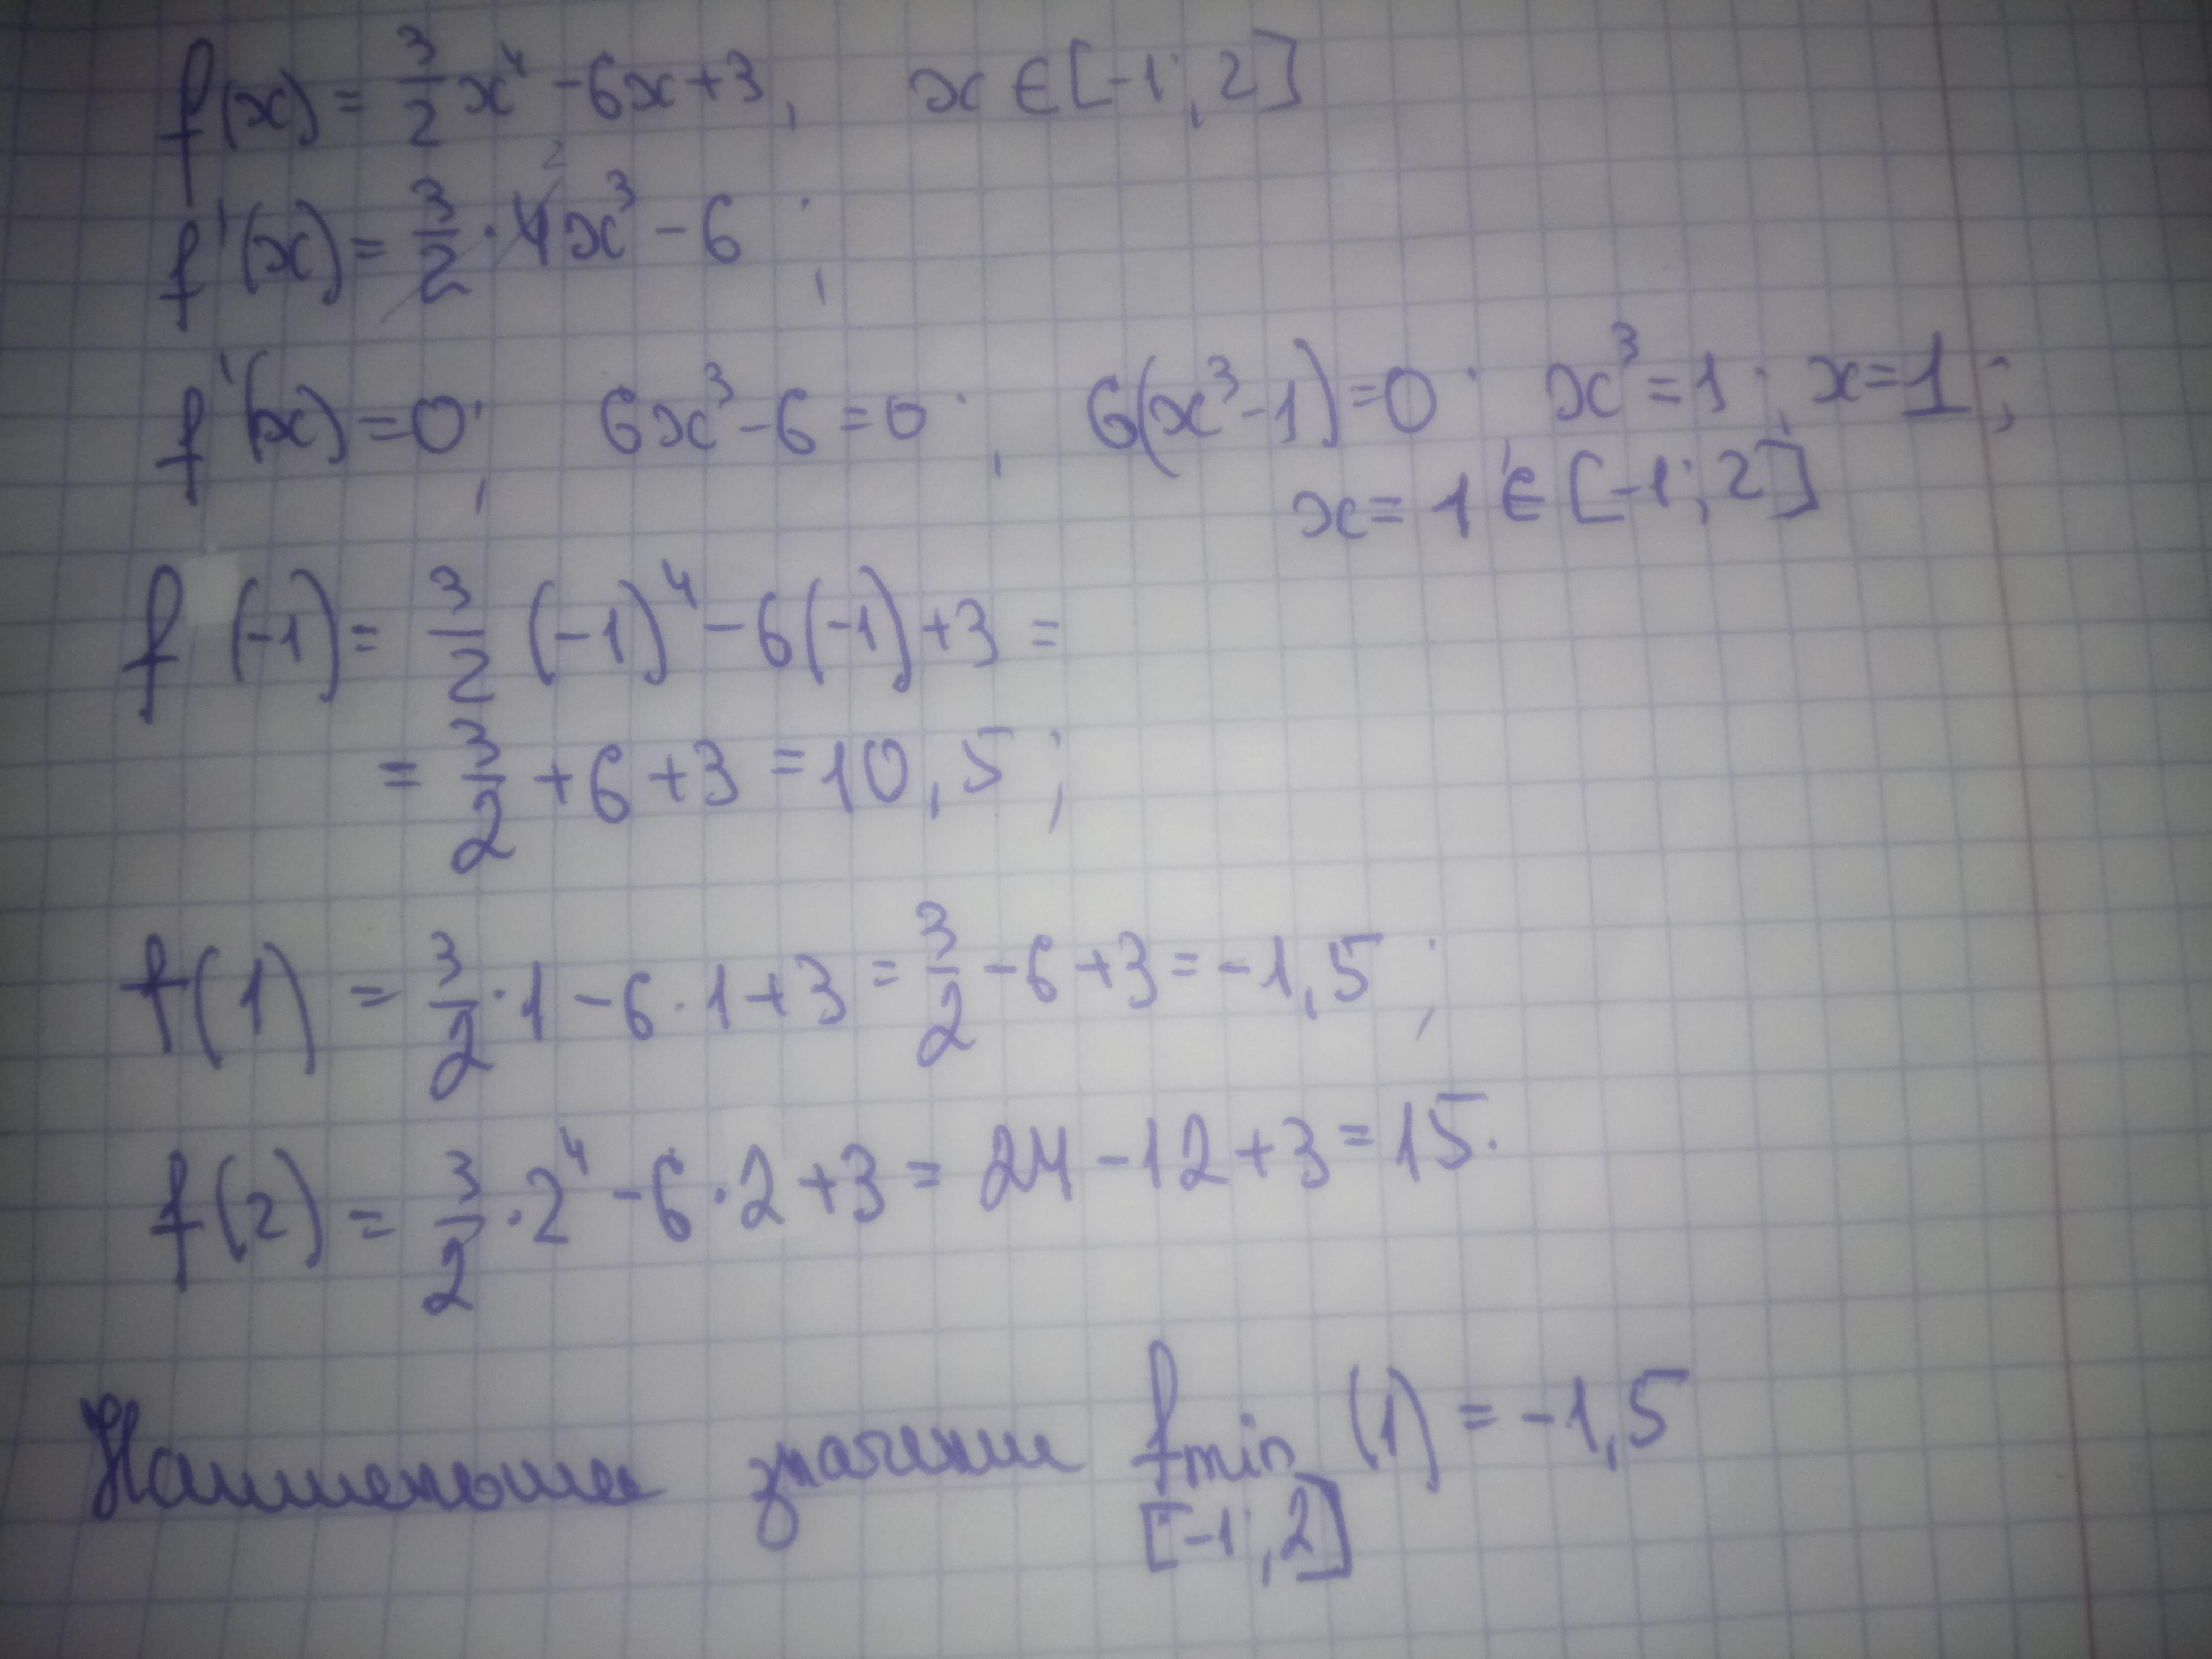 f(x) = 3/2 x⁴ - 6x + 3, x ∈ [-1; 2]
f'(x) = 3/2 · 4² x³ - 6 ;
f'(x) = 0; 6x³ - 6 = 0; 6(x³ - 1) = 0; x³ = 1; x = 1;
x = 1 ∈ [-1; 2]
f (-1) = 3/2 (-1)⁴ - 6(-1) + 3 =
= 3/2 + 6 + 3 = 10,5;
f(1) = 3/2 · 1 - 6 · 1 + 3 = 3/2 - 6 + 3 = -1,5;
f(2) = 3/2 · 2⁴ - 6 · 2 + 3 = 24 - 12 + 3 = 15.
Наименьшее значение fmin (1) = -1,5
[-1; 2]